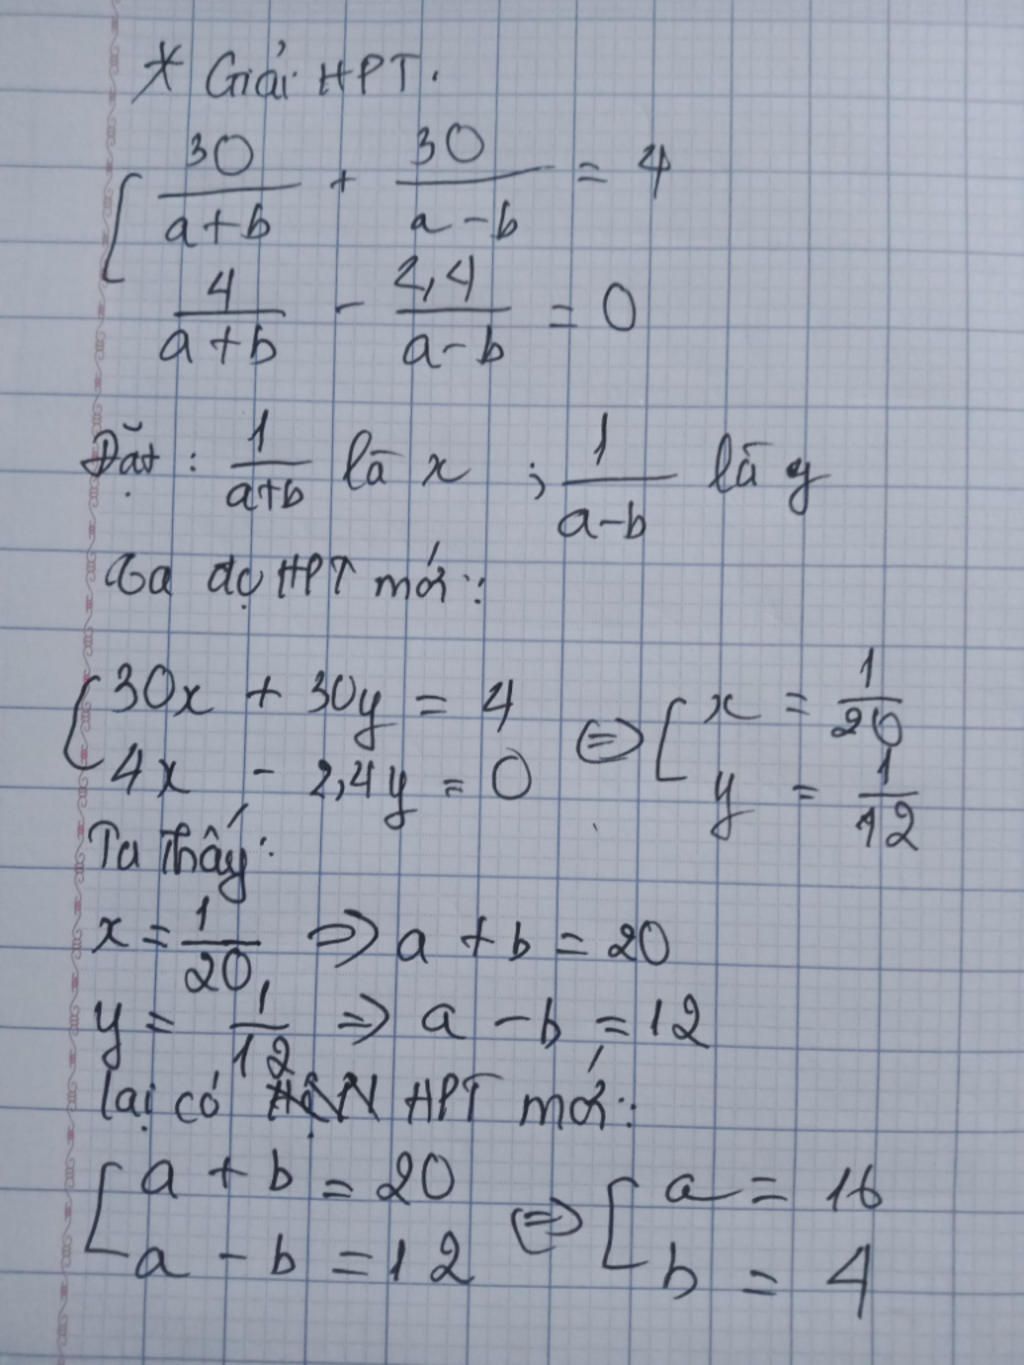 * Giải HPT.
30/(a+b) + 30/(a-b) = 4
4/(a+b) - 2,4/(a-b) = 0
Đặt : 1/(a+b) là x ; 1/(a-b) là y
Ta đc HPT mới:
30x + 30y = 4 <=> x = 1/20
4x - 2,4y = 0 y = 1/12
Ta Thấy:
x = 1/20 => a + b = 20
y = 1/12 => a - b = 12
lại có HPT mới:
a + b = 20 <=> a = 16
a - b = 12 b = 4